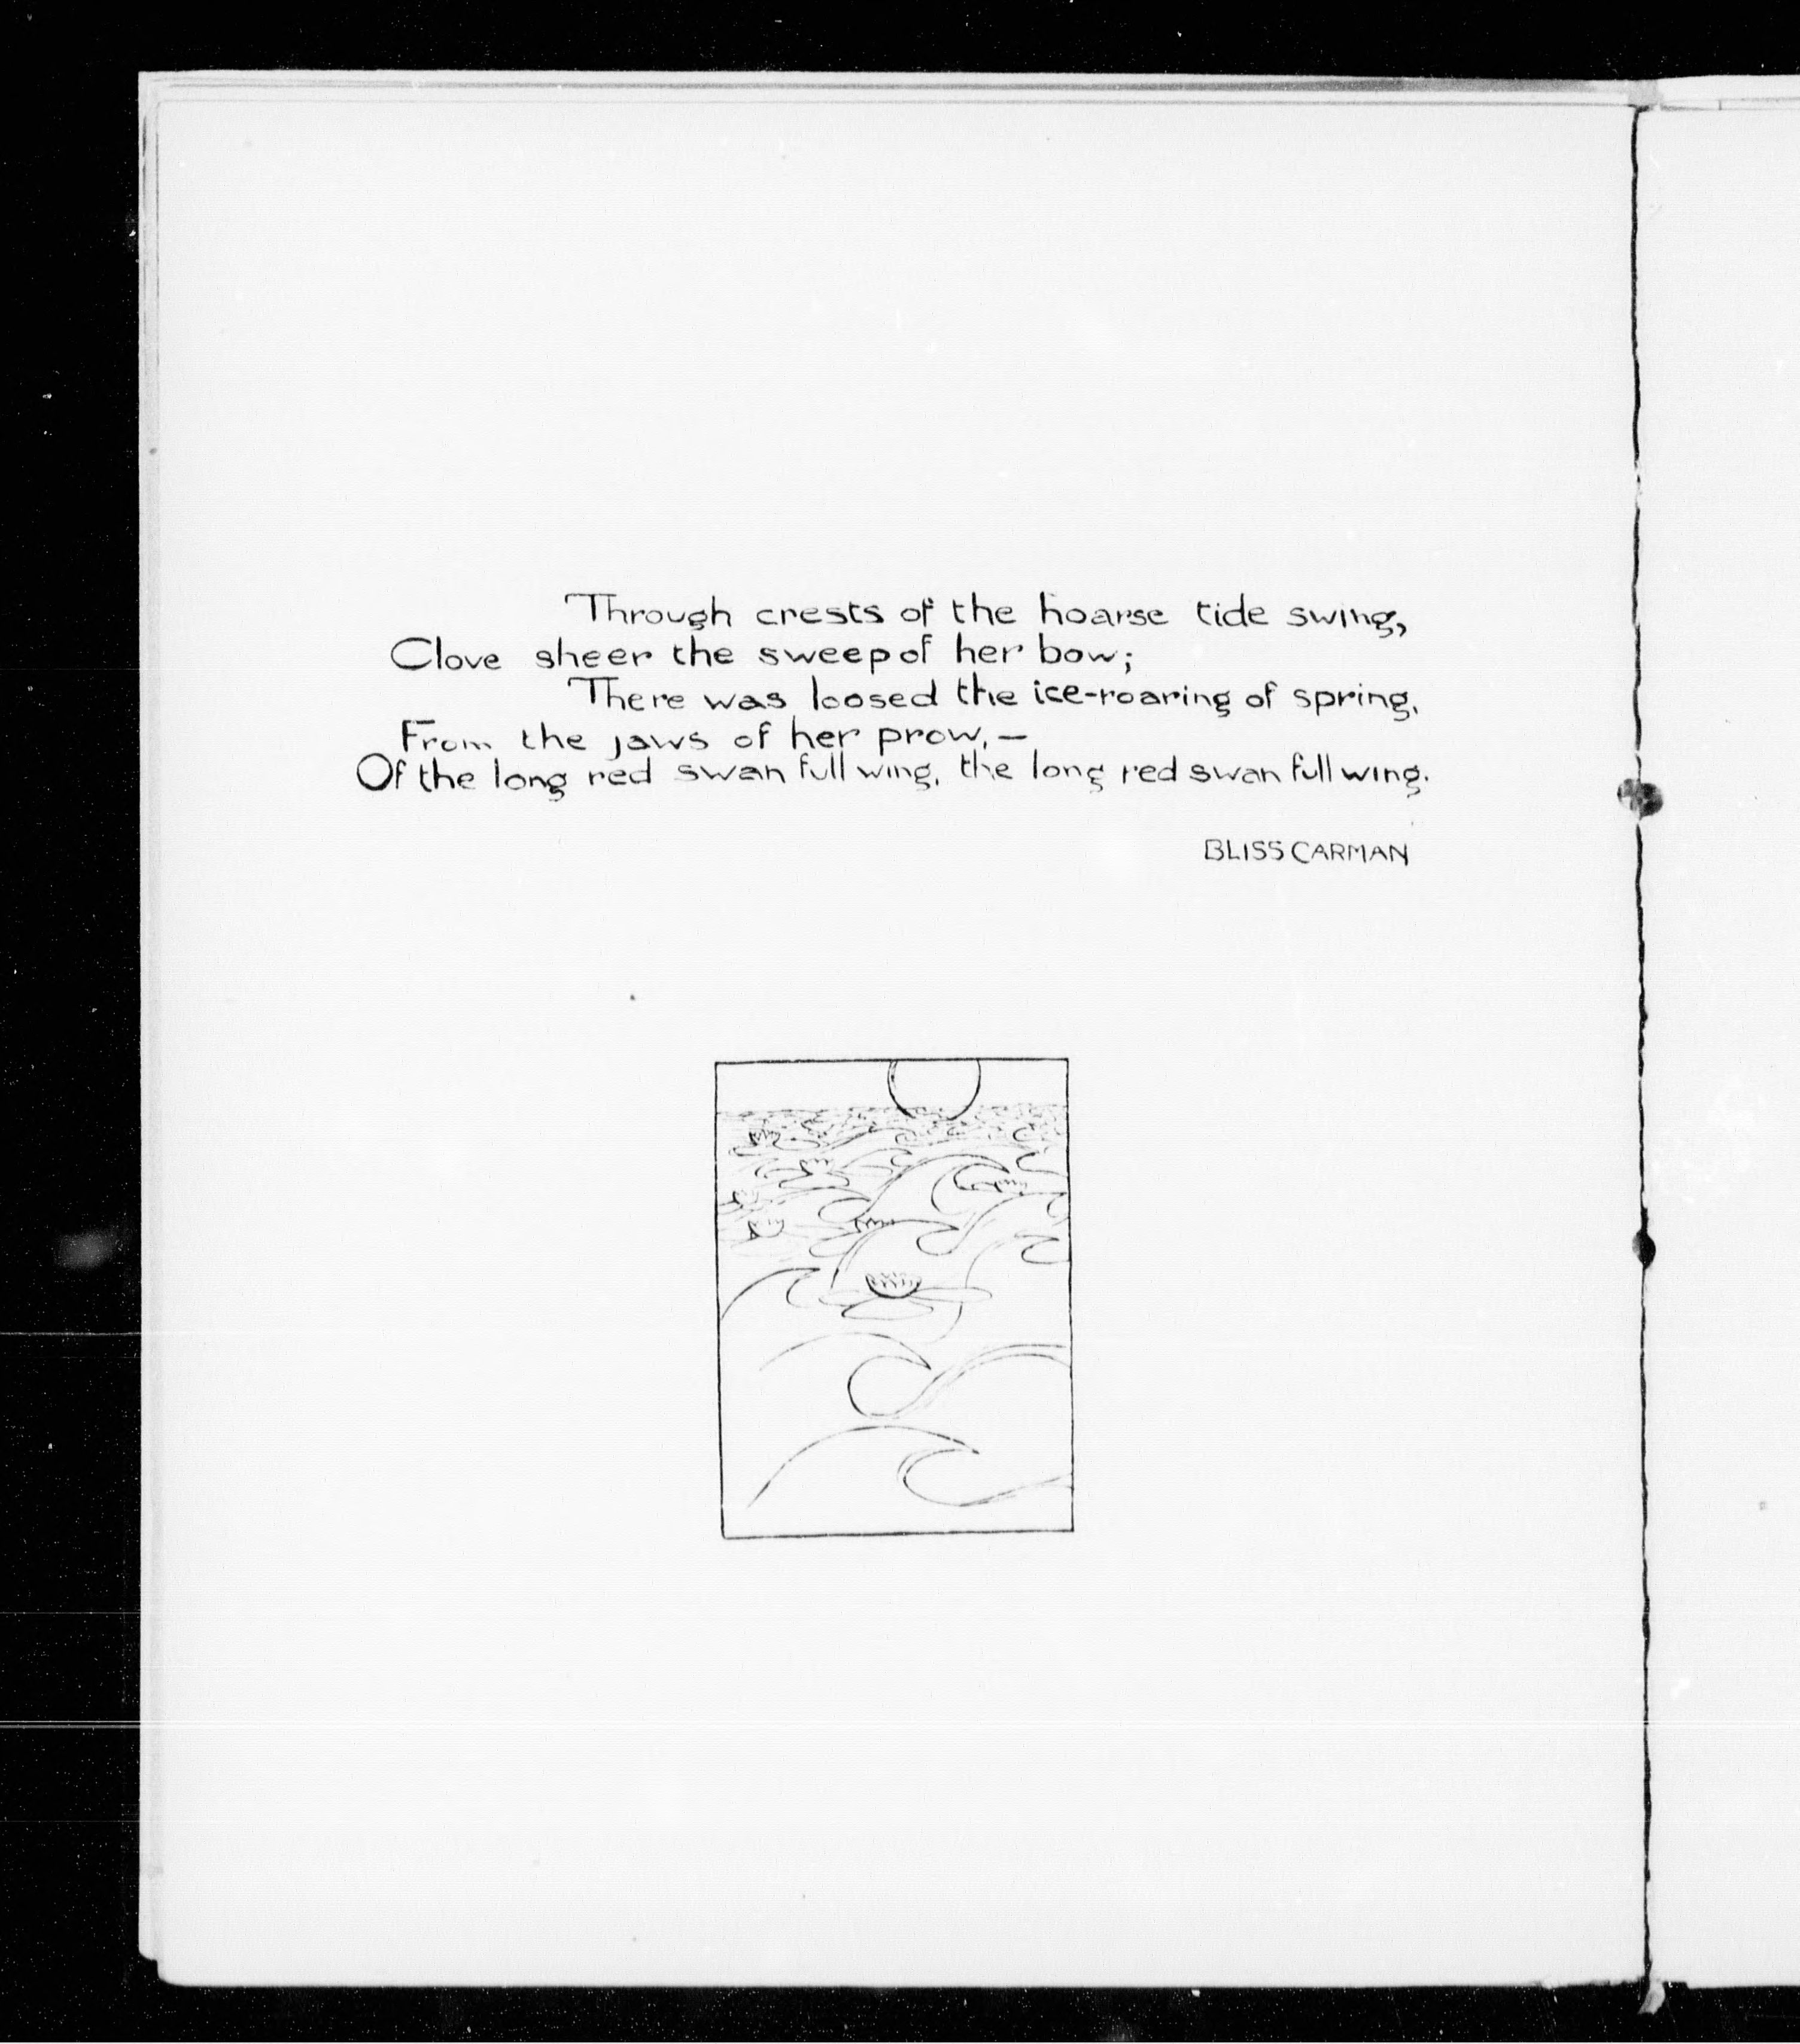 Through crests of the hoarse tide swing,
Clove sheer the sweep of her bow;
There was loosed the ice-roaring of spring,
From the jaws of her prow,—
Of the long red swan full wing, the long red swan full wing.
BLISS CARMAN